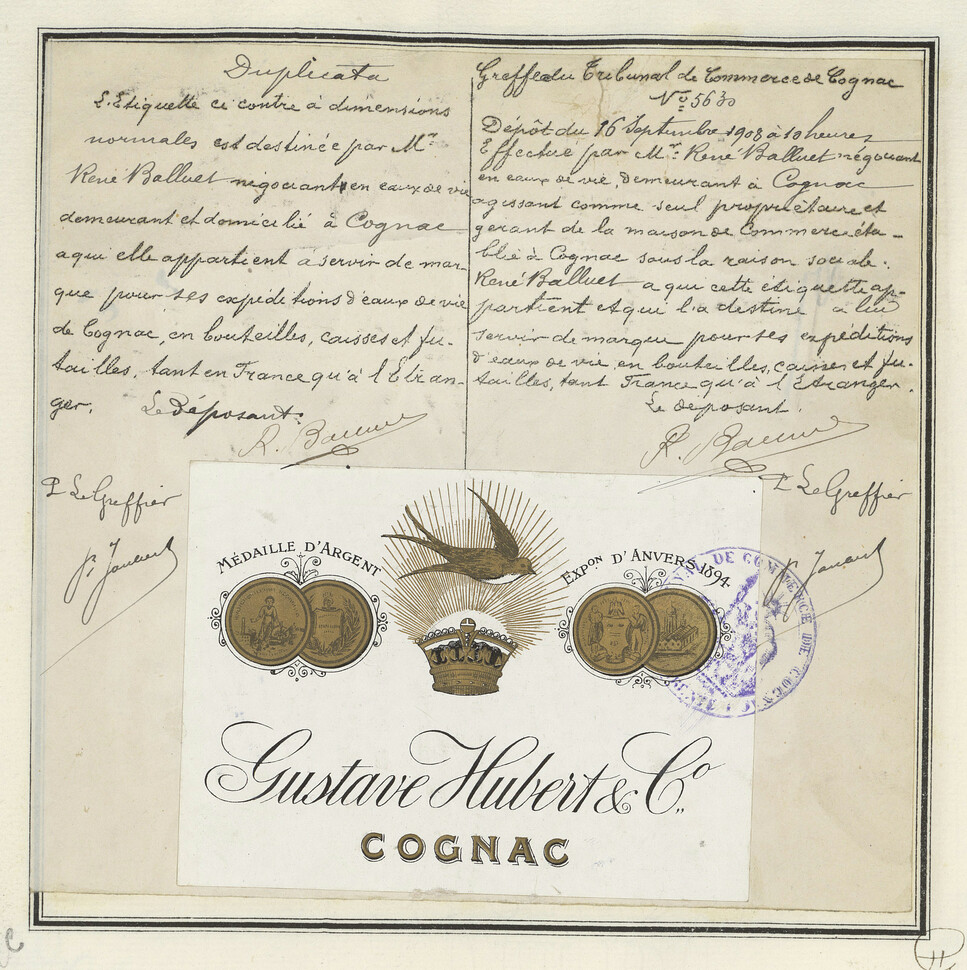 Duplicata
L'Etiquette ci contre à dimensions
normales est destinée par Mr
René Balluet négociant en eaux de vie
demeurant et domicilié à Cognac
a qui elle appartient a servir de mar-
que pour ses expéditions d'eaux de vie
de Cognac, en bouteilles, caisses et fu-
tailles, tant en France qu'à l'Etran-
ger.
Le Déposant:
P Le Greffier
Greffe du Tribunal de Commerce de Cognac
No 5630
Dépôt du 16 Septembre 1908 à 10 heures
Effectué par Mr. René Balluet négociant
en eaux de vie, demeurant à Cognac
agissant comme seul propriétaire et
gérant de la maison de Commerce éta-
blie à Cognac sous la raison sociale:
René Balluet a qui cette étiquette ap-
partient et qui l'a destine a lui
servir de marque pour ses expéditions
d'eaux de vie en bouteilles, caisses et fu-
tailles, tant France qu'à l'Etranger.
Le déposant.
P Le Greffier
MÉDAILLE D'ARGENT
EXPon D'ANVERS 1894
Gustave Hubert & Co
COGNAC
DE COMMERCE DE COGNAC